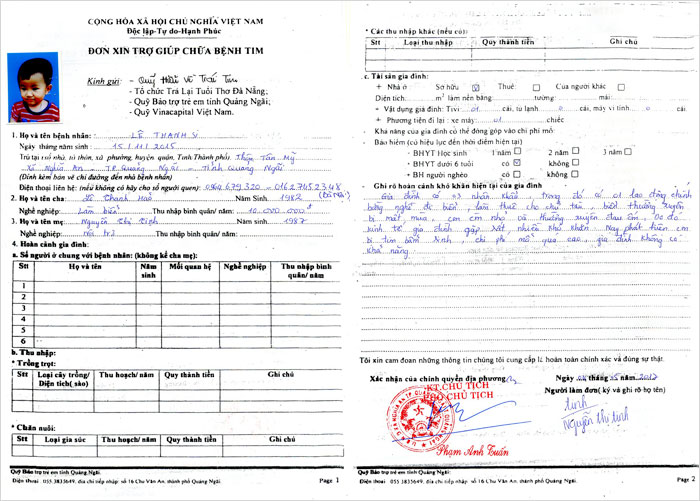 CỘNG HÒA XÃ HỘI CHỦ NGHĨA VIỆT NAM
Độc lập-Tự do-Hạnh Phúc
ĐƠN XIN TRỢ GIÚP CHỮA BỆNH TIM
Kính gửi: - Quỹ Hiểu Về Trái Tim
- Tổ chức Trả Lại Tuổi Thơ Đà Nẵng;
- Quỹ Bảo trợ trẻ em tỉnh Quảng Ngãi;
- Quỹ Vinacapital Việt Nam;
1. Họ và tên bệnh nhân: LÊ THANH SI
Ngày tháng năm sinh: 15/11/2015
Trú tại (số nhà, tổ thôn, xã phường, huyện quận, Tỉnh Thành phố): Thôn Tân Mỹ
Xã Nghĩa An - TP. Quảng Ngãi - Tỉnh Quảng Ngãi
(Đính kèm bản vẽ chỉ đường đến nhà bệnh nhân)
Điện thoại liên hệ: (nếu không có hãy cho số người quen):
2. Họ và tên cha: Lê Thanh Hào Năm Sinh: 1982
Nghề nghiệp: Làm biển Thu nhập bình quân/ năm: 10.000.000đ
3. Họ và tên mẹ: Nguyễn Thị Tịnh Năm sinh: 1987
Nghề nghiệp: Nội trợ Thu nhập bình quân/ năm:
4. Hoàn cảnh gia đình:
a. Số người ở chung với bệnh nhân: (không kể cha mẹ):
Stt Họ và tên Năm sinh Mối quan hệ Nghề nghiệp Thu nhập bình quân/ năm
1
2
3
4
5
6
b. Thu nhập:
* Trồng trọt:
Stt Loại cây trồng/ Diện tích( sào) Thu hoạch/ năm Quy thành tiền Ghi chú
* Chăn nuôi:
Stt Loại gia súc Thu hoạch/ năm Quy thành tiền Ghi chú
Quỹ Bảo trợ trẻ em tỉnh Quảng Ngãi.
Điện thoại: 055.3835649. địa chỉ tiếp nhận: số 16 Chu Văn An, thành phố Quảng Ngãi. Page 1
* Các thu nhập khác (nếu có):
Stt Loại thu nhập Quy thành tiền Ghi chú
c. Tài sản gia đình:
+ Nhà ở Sở hữu Thuê Của người khác
Diện tích: m² làm nền bằng: tường: mái:
+ Vật dụng gia đình: Tivi 01 cái, tủ lạnh 0 cái, máy vi tính 0 cái
+ Phương tiện đi lại: xe máy 01 chiếc
Khả năng của gia đình có thể đóng góp vào chi phí mổ:
- Bảo hiểm (có hiệu lực đến thời điểm hiện tại)
- BHYT Học sinh 1 năm 2 năm 3 năm
- BHYT dưới 6 tuổi có không
- BH người nghèo có không
Ghi rõ hoàn cảnh khó khăn hiện tại của gia đình
Gia đình có 03 nhân khẩu trong đó có 01 lao động chính
bằng nghề đi biển làm thuê cho chủ tàu, biển thường xuyên
bị mất mùa, con em nhỏ và thường xuyên đau ốm, do đó
kinh tế gia đình gặp rất nhiều khó khăn. Nay phát hiện em
bị tim bẩm sinh, chi phí mổ quá cao, gia đình không có
khả năng.
Tôi xin cam đoan những thông tin chúng tôi cung cấp là hoàn toàn chính xác và đúng sự thật.
Xác nhận của chính quyền địa phương
KT.CHỦ TỊCH
PHÓ CHỦ TỊCH
Phạm Anh Tuấn
Ngày tháng 05 năm 2017
Người làm đơn( ký và ghi rõ họ tên)
Tịnh
Nguyễn Thị Tịnh
Quỹ Bảo trợ trẻ em tỉnh Quảng Ngãi.
Điện thoại: 055.3835649. địa chỉ tiếp nhận: số 16 Chu Văn An, thành phố Quảng Ngãi. Page 2